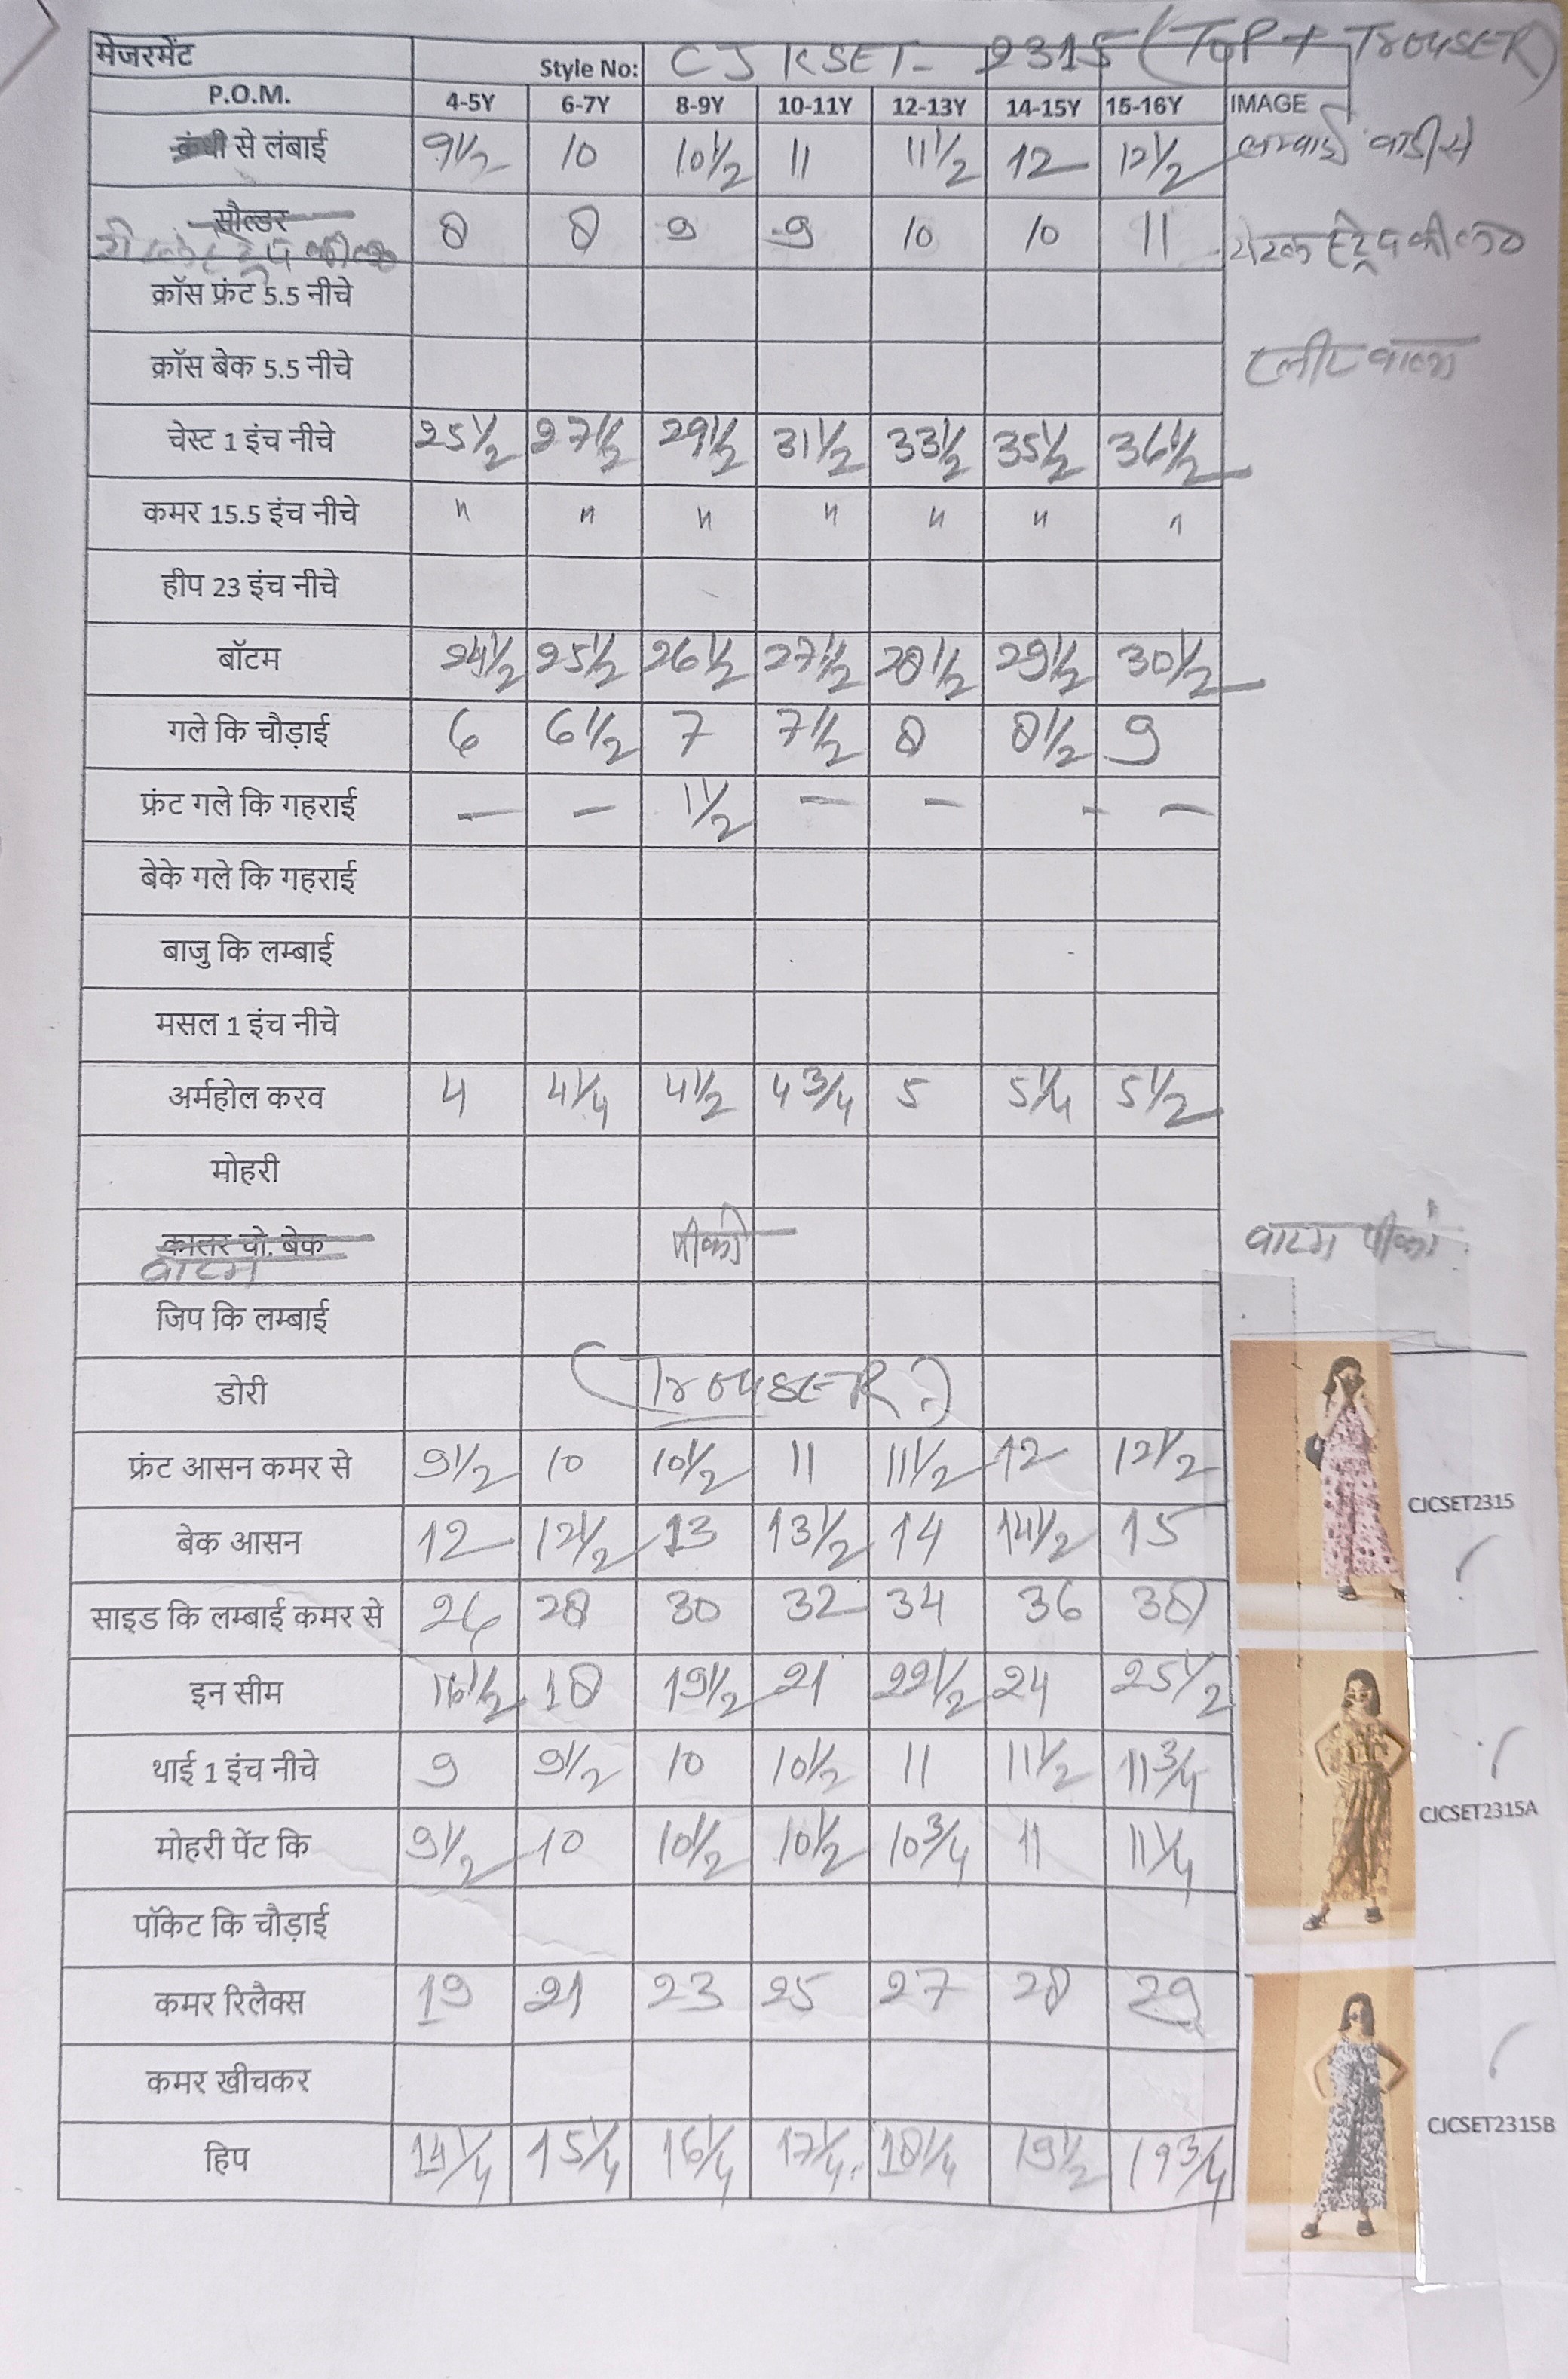 मेजरमेंट Style No: CJKSET- 2315 (TOP + TrouSER)
P.O.M. 4-5Y 6-7Y 8-9Y 10-11Y 12-13Y 14-15Y 15-16Y IMAGE
से लंबाई 9 1/2 10 10 1/2 11 11 1/2 12 12 1/2 लम्बाई बाडी से
सौल्डर 8 8 9 9 10 10 11
क्रॉस फ्रंट 5.5 नीचे
क्रॉस बेक 5.5 नीचे
चेस्ट 1 इंच नीचे 25 1/2 27 1/2 29 1/2 31 1/2 33 1/2 35 1/2 36 1/2
कमर 15.5 इंच नीचे " " " " " " "
हीप 23 इंच नीचे
बॉटम 24 1/2 25 1/2 26 1/2 27 1/2 28 1/2 29 1/2 30 1/2
गले कि चौड़ाई 6 6 1/2 7 7 1/2 8 8 1/2 9
फ्रंट गले कि गहराई — — 1 1/2 — — - —
बेके गले कि गहराई
बाजु कि लम्बाई
मसल 1 इंच नीचे
अर्महोल करव 4 4 1/4 4 1/2 4 3/4 5 5 1/4 5 1/2
मोहरी
कालर चो. बेक पीको वाटम पीको
वाटम
जिप कि लम्बाई
डोरी (TrouSER)
फ्रंट आसन कमर से 9 1/2 10 10 1/2 11 11 1/2 12 12 1/2
बेक आसन 12 12 1/2 13 13 1/2 14 14 1/2 15
CJCSET2315
साइड कि लम्बाई कमर से 26 28 30 32 34 36 38
इन सीम 16 1/2 18 19 1/2 21 22 1/2 24 25 1/2
थाई 1 इंच नीचे 9 9 1/2 10 10 1/2 11 11 1/2 11 3/4
CJCSET2315A
मोहरी पेंट कि 9 1/2 10 10 1/2 10 1/2 10 3/4 11 11 1/4
पॉकेट कि चौड़ाई
कमर रिलैक्स 19 21 23 25 27 28 29
कमर खीचकर
CJCSET2315B
हिप 14 1/4 15 1/4 16 1/4 17 1/4 18 1/4 19 1/2 19 3/4